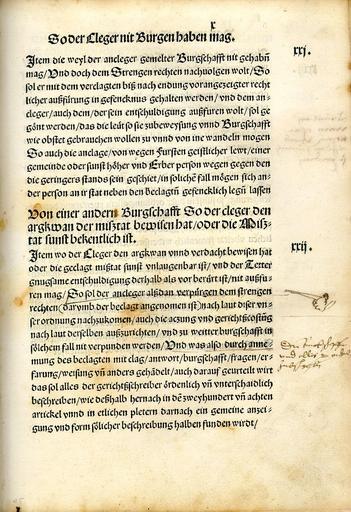 x
So der Cleger nit Burgen haben mag.
xxj.
Item die weyl der ancleger gemelter Burgschafft nit gehabñ
mag/Vnd doch dem Strengen rechten nachuolgen wolt/So
sol er mit dem verclagten biß nach endung vorangezeigter recht
licher außfürung in gefencknus gehalten werden/vnd dem an-
cleger/auch dem/der sein entschuldigung außfüren wolt/sol ge
gönt werden/das die leüt so sie zubeweysung vnnd Burgschafft
wie obstet gebrauchen wollen zu vnnd von ine wandeln mogen
So auch die anclage/von wegen Fursten geistlicher lewt/einer
gemeinde oder sunst höher vnd Erber person wegen gegen den
die geringers stands sein geschiet/in solichē fall mögen sich an-
der person an ir stat neben den beclagtñ gefencklich legñ lassen
Von einer andern Burgschafft So der cleger den
argkwan der mißtat bewisen hat/oder die Miß-
tat sunst bekentlich ist.
xxij.
Item wo der Cleger den argkwan vnnd verdacht bewisen hat
oder die geclagt mißtat sunst vnlaugenbar ist/vnd der Tetter
gnugsame entschuldigung derhalb als vor berürt ist/nit außfu-
ren mag/So sol der ancleger alßdan verpürgen dem strengen
rechten (darumb der beclagt angenomen ist) nach laut diser vn-
ser ordnung nachzukomen/auch die atzung vnd gerichtßcostūg
nach laut derselben außzurichten/vnd zu weiter burgschafft in
sölchem fall nit verpunden werden/Vnd was also durch anne-
mung des beclagten mit clag/antwort/burgschafft/fragen/er-
farung/weisung vñ anders gehādelt/auch darauf geurteilt wirt
das sol alles der gerichtßschreiber ördenlich vñ vnterschaidlich
beschreiben/wie deßhalb hernach in dē zweyhundert vñ achten
artickel vnnd in etlichen pletern darnach ein gemeine anzei-
gung vnd form sölicher beschreibung halben funden wirdt/